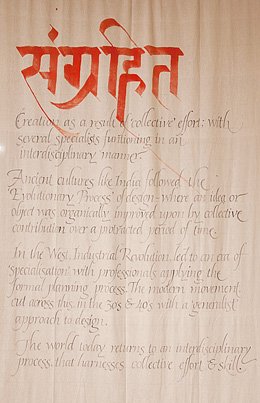 संग्रहित
Creation as a result of 'collective' effort: with
several specialists funtioning in an
interdisciplinary manner
Ancient cultures like India followed the
'Evolutionary Process' of design - where an idea or
object was organically improved upon by collective
contribution over a protracted period of time.
In the West, Industrial Revolution, led to an era of
specialisation with professionals applying the
formal planning process. The modern movement
cut across this, in the 30's & 40's with a 'generalist'
approach to design.
The world today returns to an interdisciplinary
process, that harnesses collective effort & skill.